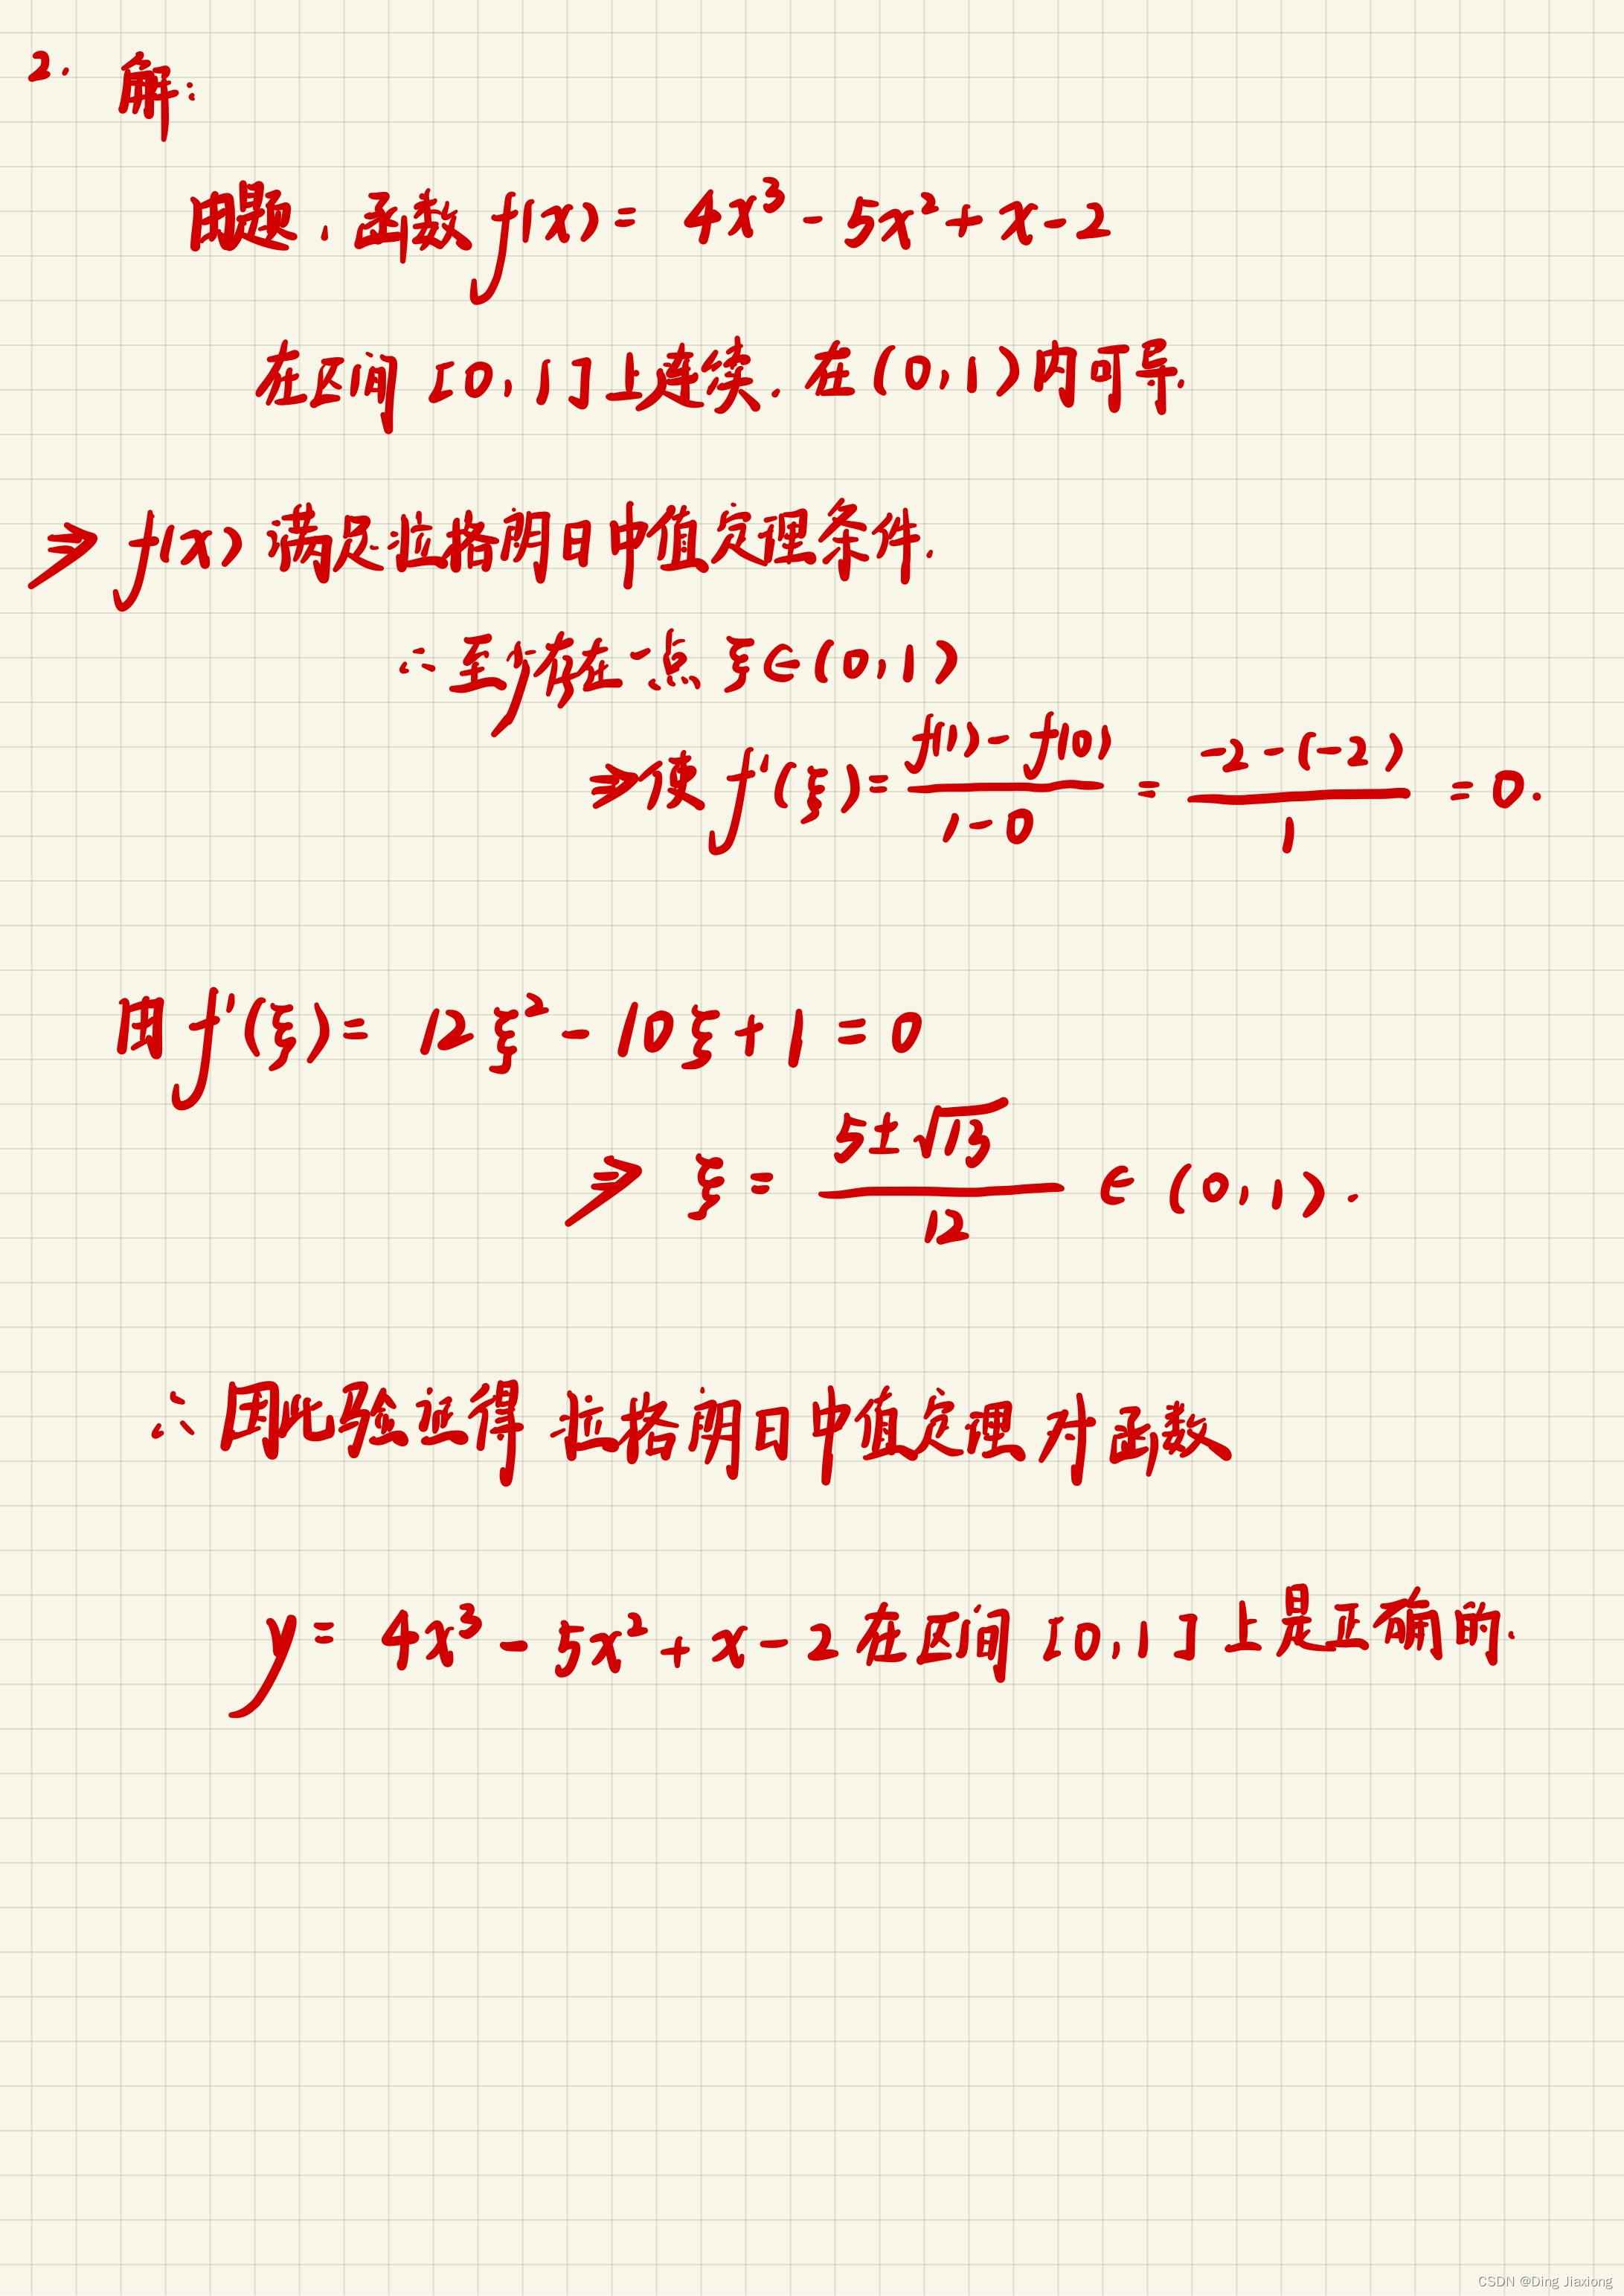 2. 解:
由题, 函数 f(x) = 4x³ - 5x² + x - 2
在区间 [0, 1] 上连续, 在 (0, 1) 内可导.
⇒ f(x) 满足拉格朗日中值定理条件.
∴ 至少存在一点 ξ∈(0, 1)
⇒ 使 f'(ξ) = \frac{f(1) - f(0)}{1 - 0} = \frac{-2 - (-2)}{1} = 0.
由 f'(ξ) = 12ξ² - 10ξ + 1 = 0
⇒ ξ = \frac{5 ± \sqrt{13}}{12} ∈ (0, 1).
∴ 因此验证得 拉格朗日中值定理 对 函数
y = 4x³ - 5x² + x - 2 在区间 [0, 1] 上是正确的.
CSDN @Ding Jiaxiong